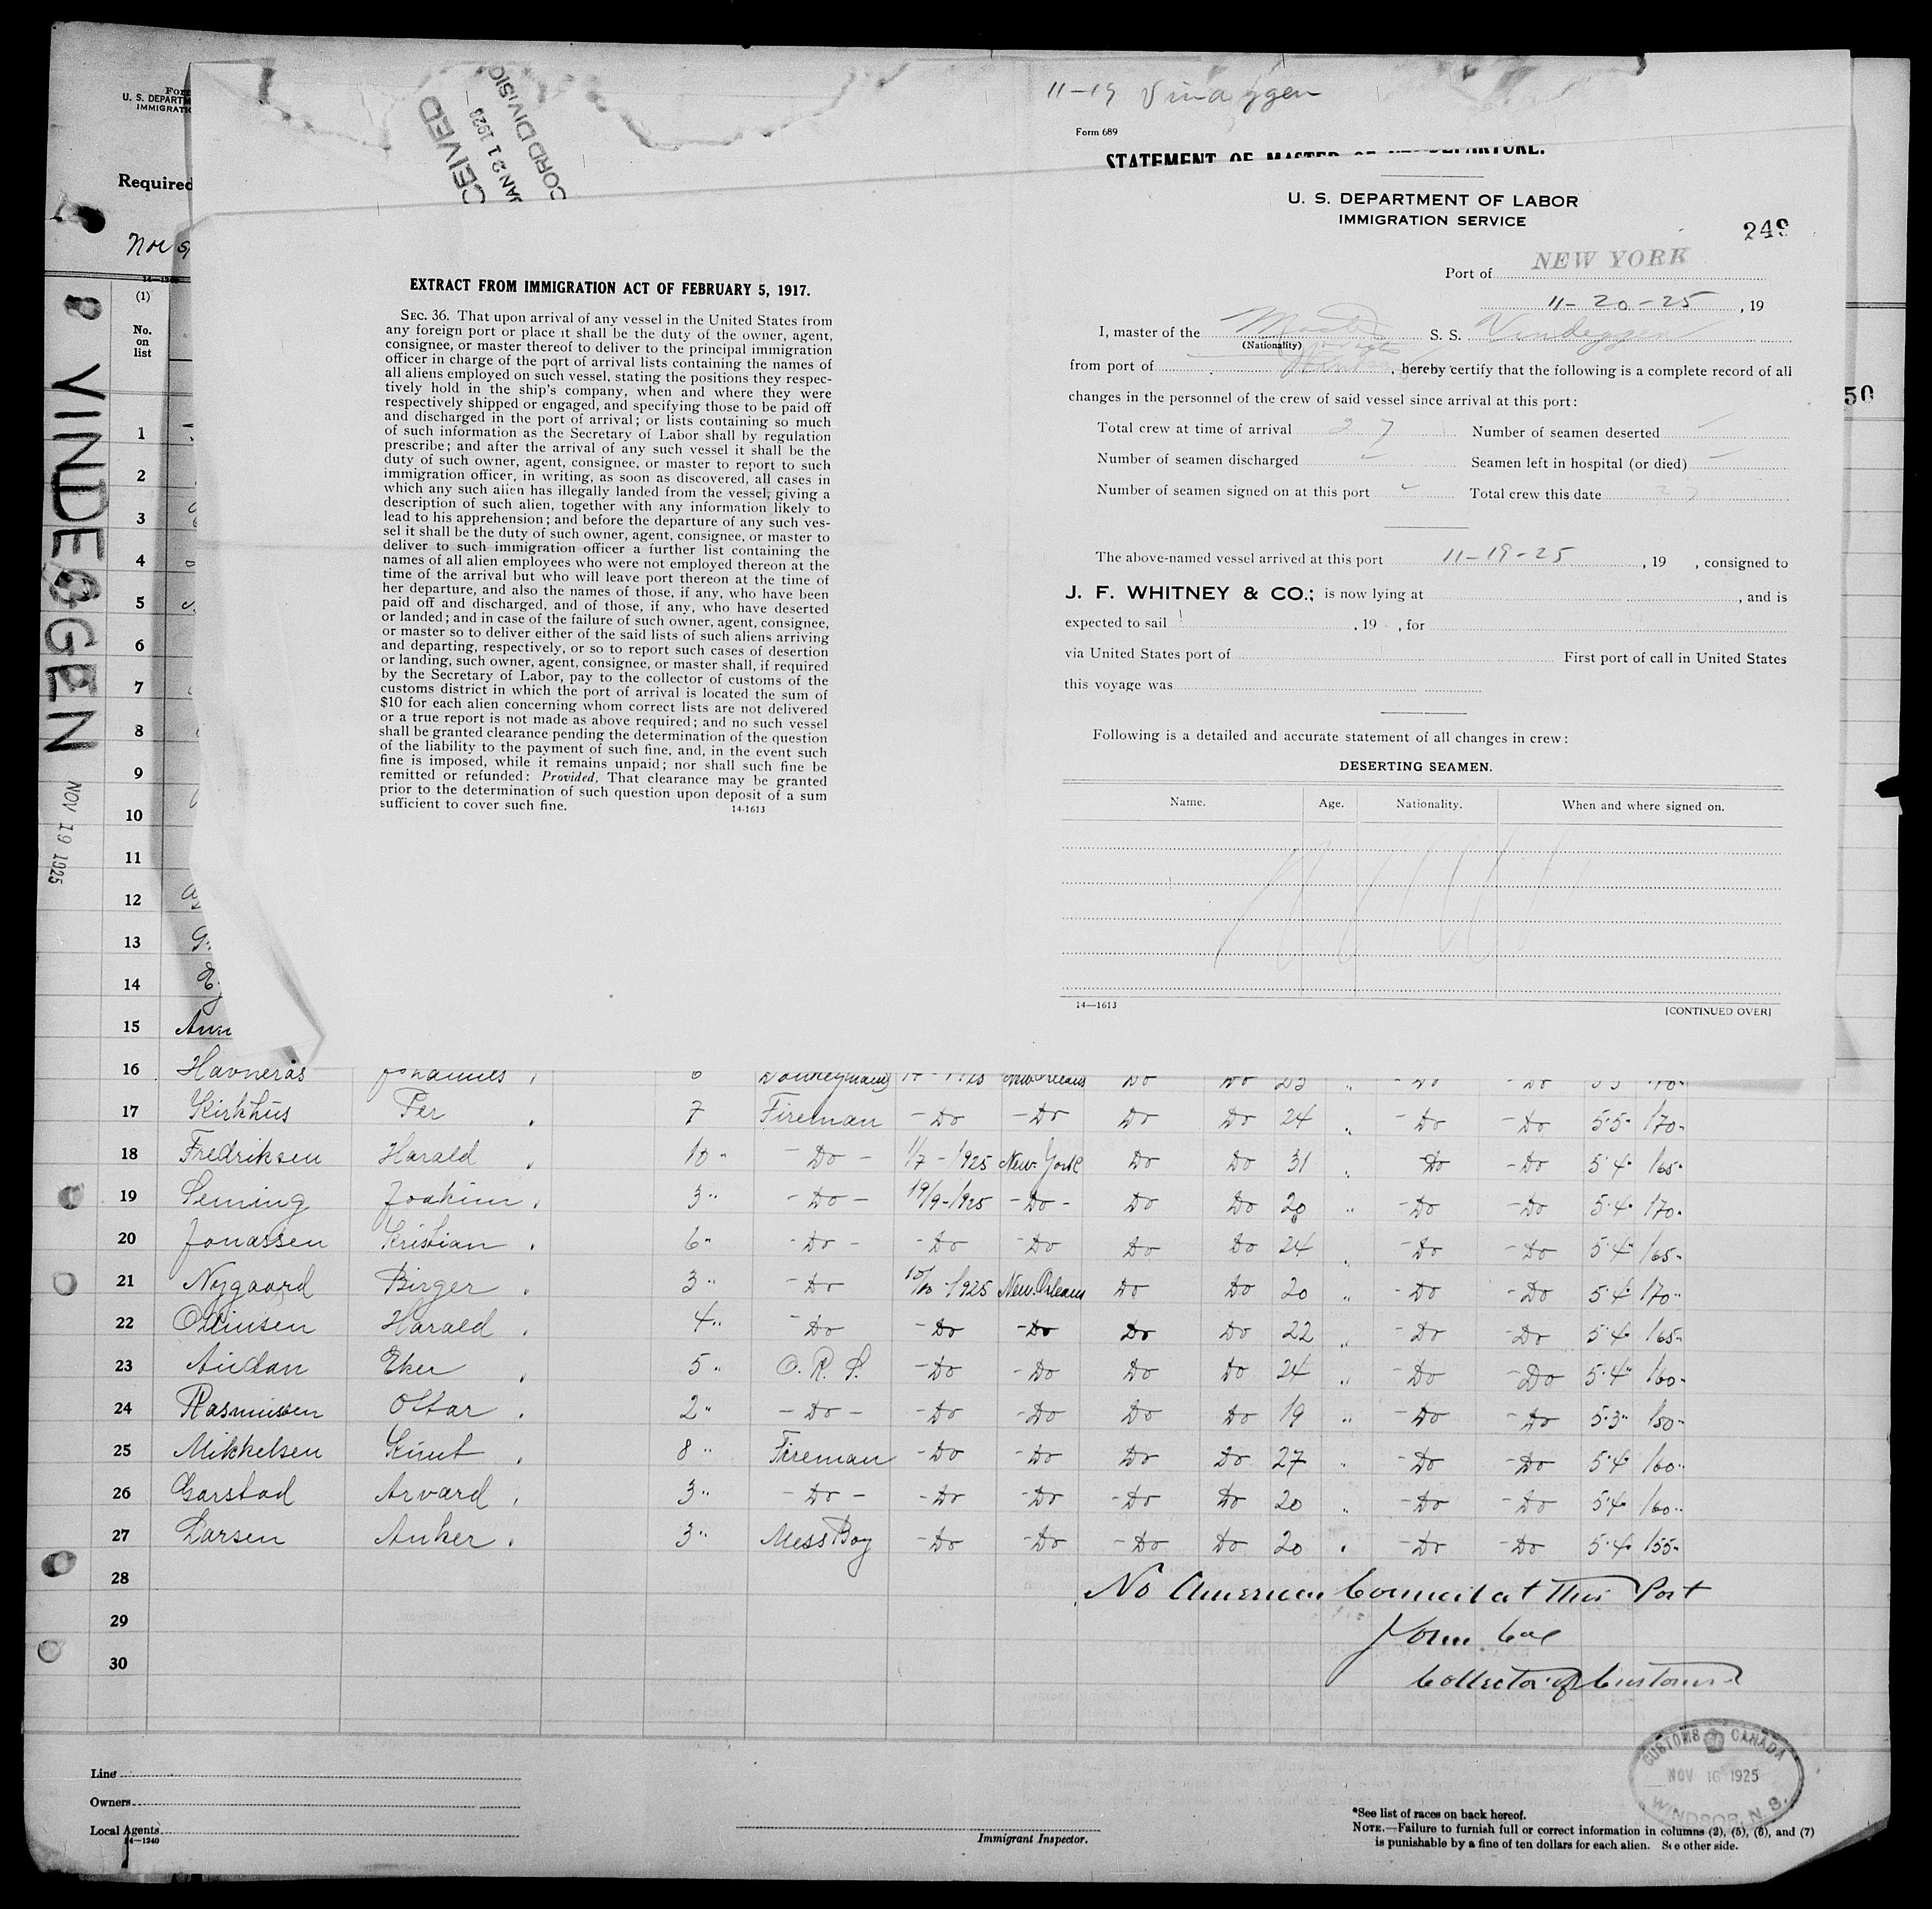 11-19 Vindeggen
Form 689
U. S. DEPARTM
IMMIGRATI
Required
CEIVED
JAN 21 192
CORD DIVISIO
STATEMENT OF MASTER
DEPARTURE.
U. S. DEPARTMENT OF LABOR
IMMIGRATION SERVICE
249
Port of NEW YORK
11-20-25, 19
I, master of the S. S. Vindeggen
(Nationality)
from port of , hereby certify that the following is a complete record of all
changes in the personnel of the crew of said vessel since arrival at this port:
Total crew at time of arrival 27 Number of seamen deserted –
Number of seamen discharged – Seamen left in hospital (or died) –
Number of seamen signed on at this port – Total crew this date 27
The above-named vessel arrived at this port 11-19-25, 19 , consigned to
J. F. WHITNEY & CO.; is now lying at , and is
expected to sail , 19 , for
via United States port of First port of call in United States
this voyage was
Following is a detailed and accurate statement of all changes in crew:
DESERTING SEAMEN.
Name. Age. Nationality. When and where signed on.
14—1613 [CONTINUED OVER]
EXTRACT FROM IMMIGRATION ACT OF FEBRUARY 5, 1917.
SEC. 36. That upon arrival of any vessel in the United States from
any foreign port or place it shall be the duty of the owner, agent,
consignee, or master thereof to deliver to the principal immigration
officer in charge of the port of arrival lists containing the names of
all aliens employed on such vessel, stating the positions they respec-
tively hold in the ship's company, when and where they were
respectively shipped or engaged, and specifying those to be paid off
and discharged in the port of arrival; or lists containing so much
of such information as the Secretary of Labor shall by regulation
prescribe; and after the arrival of any such vessel it shall be the
duty of such owner, agent, consignee, or master to report to such
immigration officer, in writing, as soon as discovered, all cases in
which any such alien has illegally landed from the vessel, giving a
description of such alien, together with any information likely to
lead to his apprehension; and before the departure of any such ves-
sel it shall be the duty of such owner, agent, consignee, or master to
deliver to such immigration officer a further list containing the
names of all alien employees who were not employed thereon at the
time of the arrival but who will leave port thereon at the time of
her departure, and also the names of those, if any, who have been
paid off and discharged, and of those, if any, who have deserted
or landed; and in case of the failure of such owner, agent, consignee,
or master so to deliver either of the said lists of such aliens arriving
and departing, respectively, or so to report such cases of desertion
or landing, such owner, agent, consignee, or master shall, if required
by the Secretary of Labor, pay to the collector of customs of the
customs district in which the port of arrival is located the sum of
$10 for each alien concerning whom correct lists are not delivered
or a true report is not made as above required; and no such vessel
shall be granted clearance pending the determination of the question
of the liability to the payment of such fine, and, in the event such
fine is imposed, while it remains unpaid; nor shall such fine be
remitted or refunded: Provided, That clearance may be granted
prior to the determination of such question upon deposit of a sum
sufficient to cover such fine.
14-1613
VINDEGGEN
NOV 19 1925
50
(1)
No.
on
list
1
2
3
4
5
6
7
8
9
10
11
12
13
14
15
16 Havnerås Johannes 6 Donkeyman New Orleans Do Do 23 " - Do - Do 5'5" 170.
17 Kirkhus Per 7 Fireman - Do - Do Do Do 24 " - Do - Do 5'5" 170.
18 Fredriksen Harald 10" - Do - 1/7-1925 New-York Do Do 31 " Do - Do 5'4" 165.
19 Joakim 3" - Do - 19/9-1925 - Do - Do Do 20 " - Do - Do 5'4" 170.
20 Jonassen Kristian 6" - Do - - Do - Do Do Do 24 " - Do - Do 5'4" 165.
21 Nygaard Birger 3" - Do 10/10-1925 New.Orleans Do Do 20 " - Do - Do 5'4" 170.
22 Harald 4" - Do - Do - Do Do Do 22 " - Do - Do 5'4" 165.
23 Audan Eker 5" O. R. S. - Do - Do Do Do 24 " - Do - Do 5'4" 160.
24 Rasmussen Ottar 2" - Do - - Do - Do Do Do 19 " - Do - Do 5'3" 150.
25 Mikkelsen Knut 8" Fireman - Do - Do Do Do 27 " - Do - Do 5'4" 160.
26 Garstad Arvard 3" - Do - - Do - Do - Do Do 20 " - Do - Do 5'4" 160.
27 Larsen Anker 3" Mess Boy - Do - Do - Do Do 20 " - Do - Do 5'4" 155.
28 No American Council at this Port
29
30 Collector of Customs
CUSTOMS CANADA
NOV 16 1925
WINDSOR, N. S.
Line
Owners
Local Agents
14—1240
Immigrant Inspector.
*See list of races on back hereof.
NOTE.—Failure to furnish full or correct information in columns (2), (5), (6), and (7)
is punishable by a fine of ten dollars for each alien. See other side.